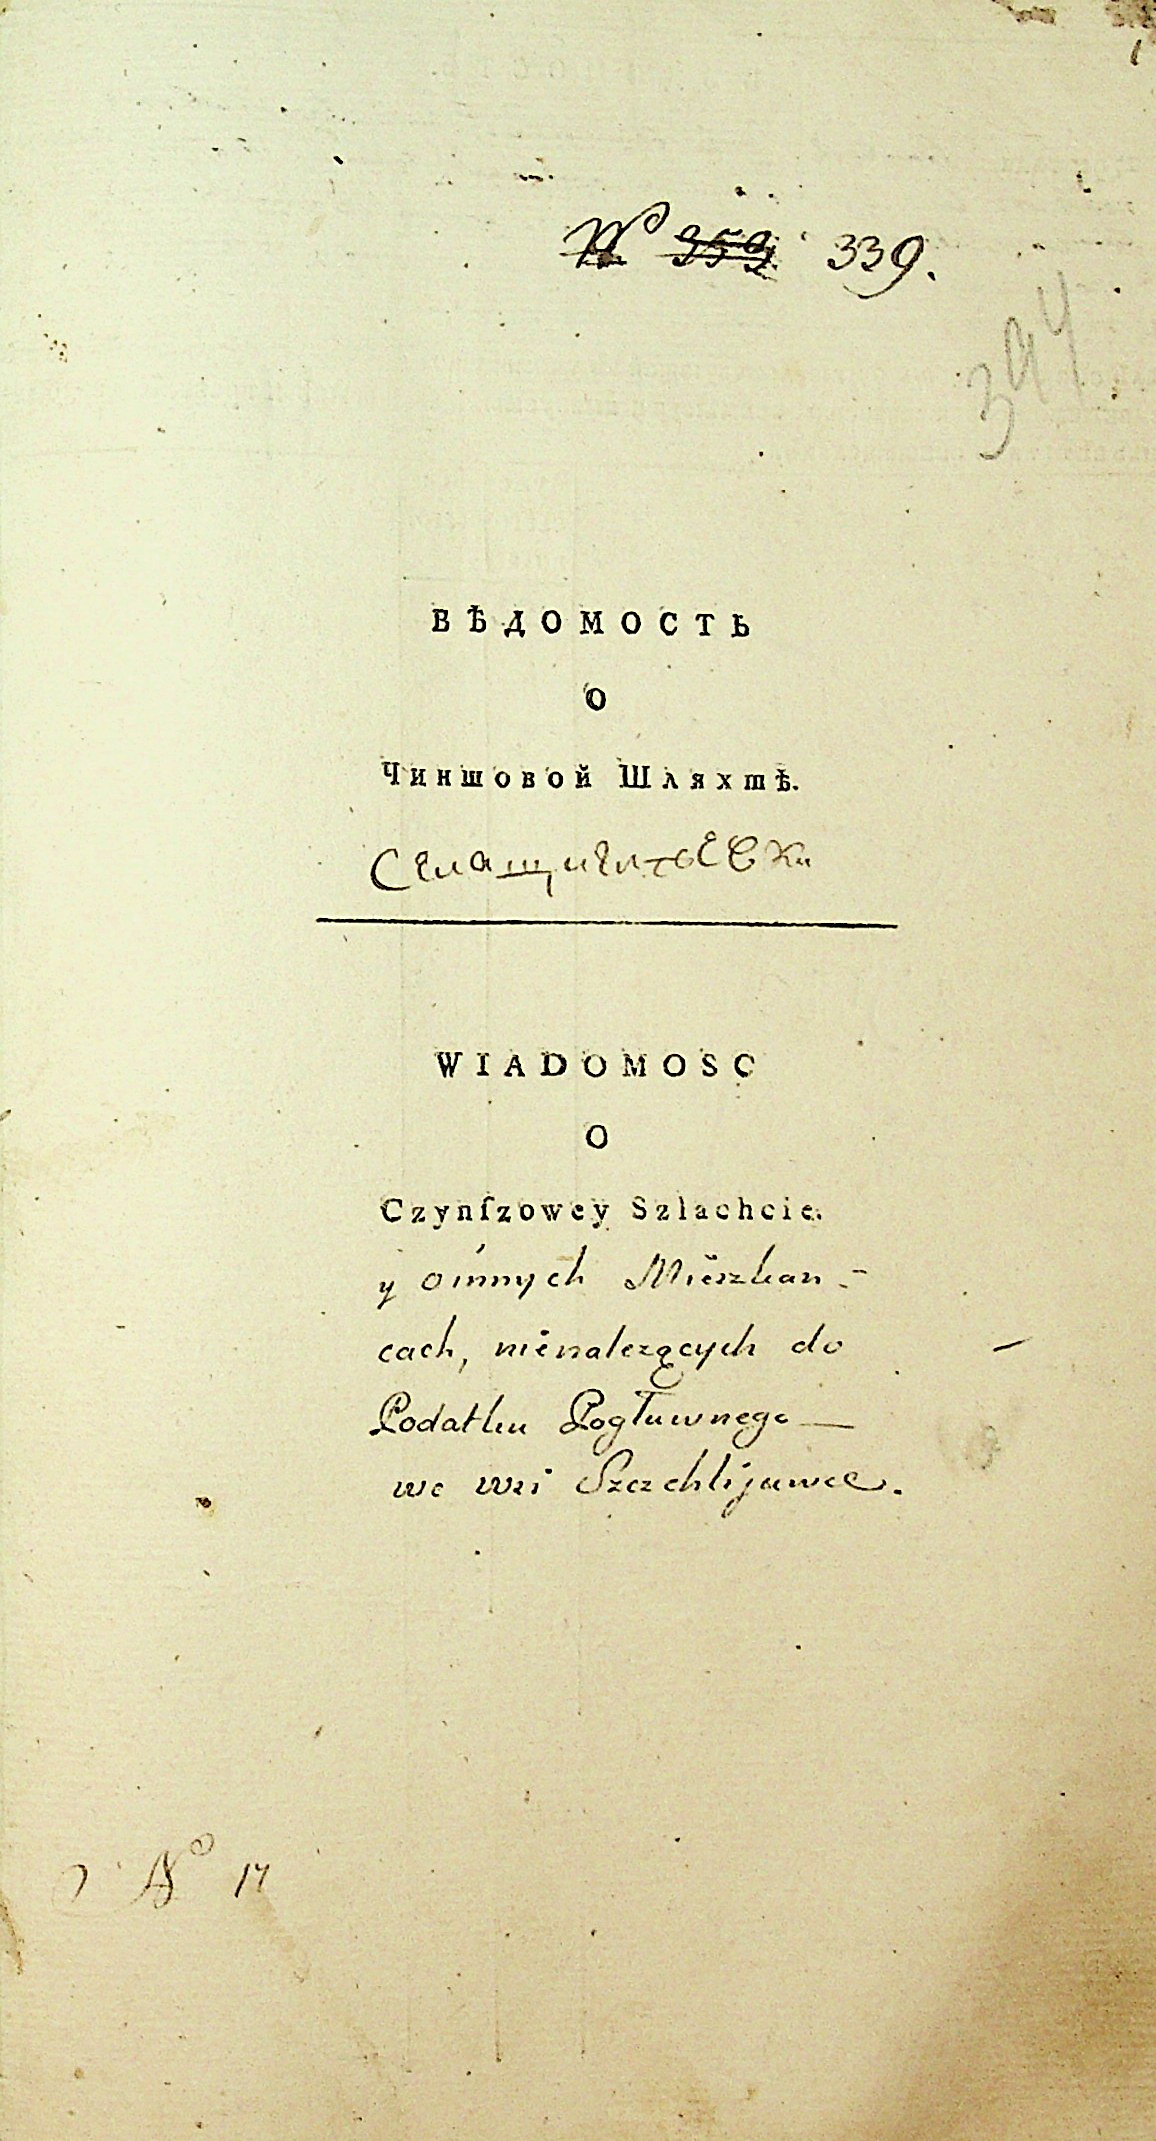 № 353 339.
394
ВѢДОМОСТЬ
О
Чиншовой Шляхтѣ.
WIADOMOSC
O
Czynſzowey Szlachcie.
y o innych Mieszkan-
cach, nienależących do
Podatku Pogłuwnego
we wsi
№ 17